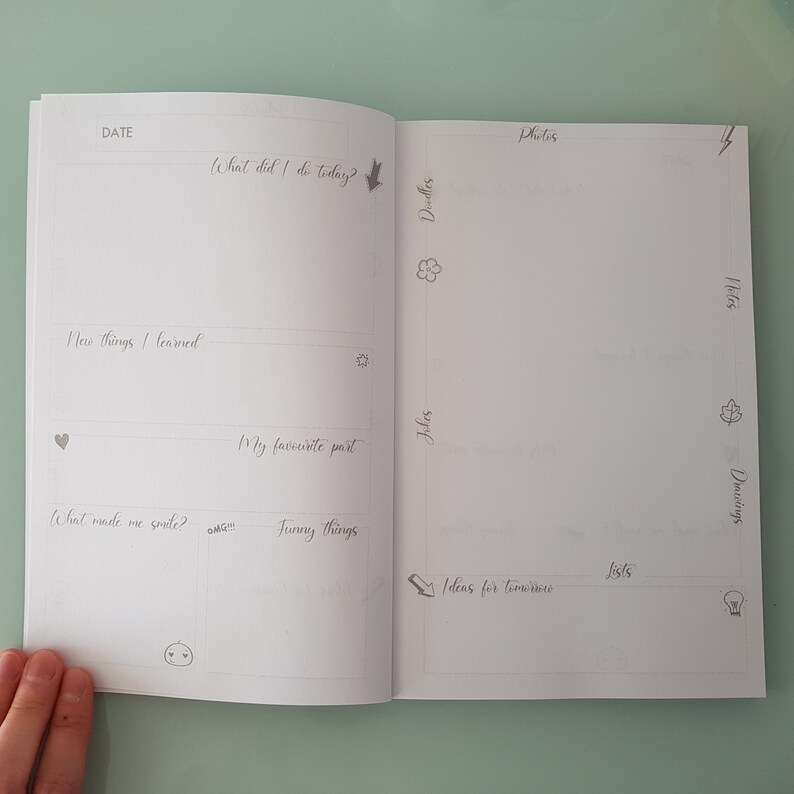 DATE
What did I do today?
New things I learned
My favourite part
What made me smile?
OMG!!!
Funny things
Photos
Doodles
Notes
Jokes
Drawings
Lists
Ideas for tomorrow